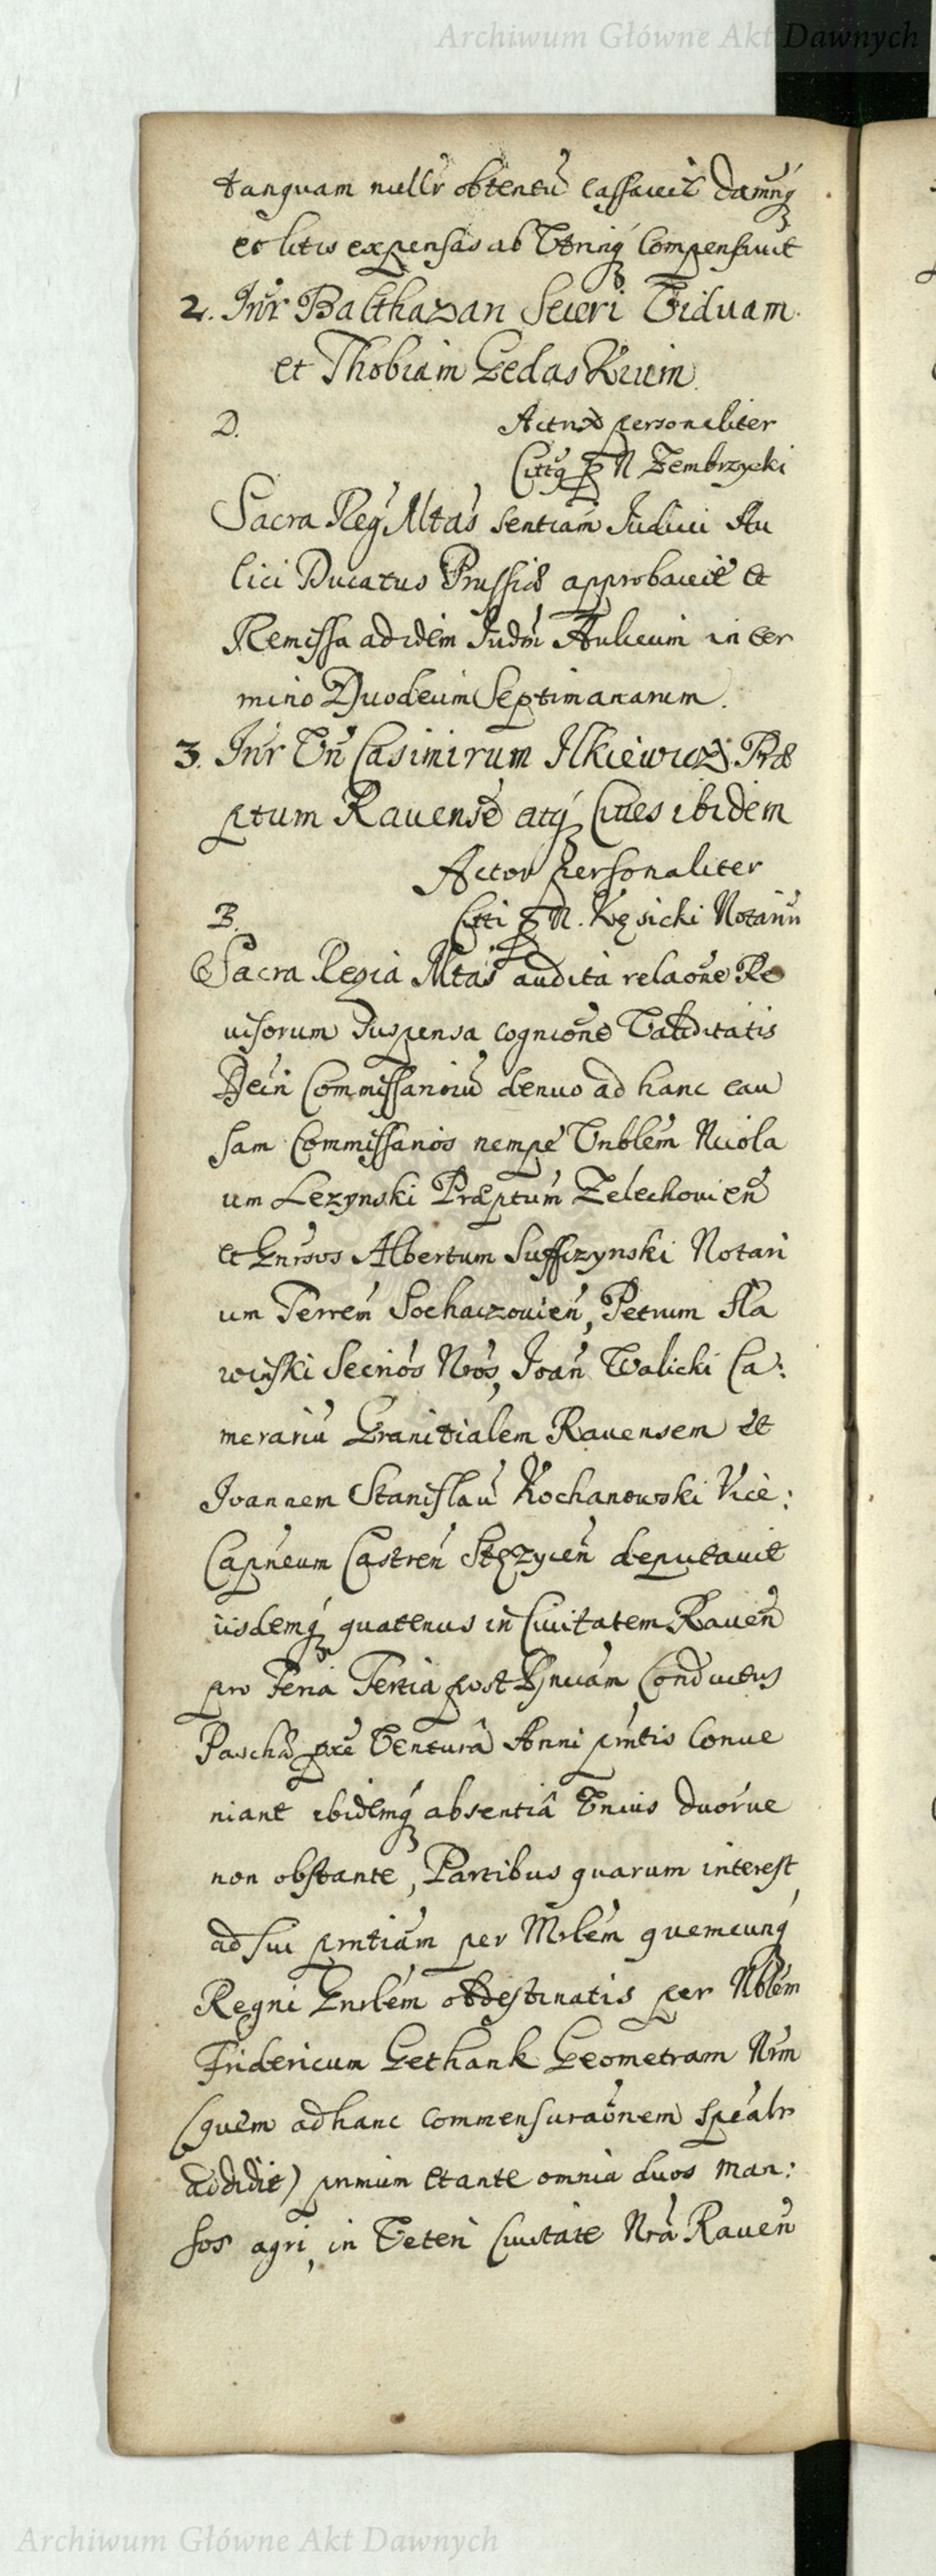 Archiwum Główne Akt Dawnych
tanquam nullr obtentũ cassavit damnq́
et litis expensas ab Vtrinq́ Compensavit
2. Intr Balthazan Seceri Viduam
et Thobiam Gedas Krum
D. Actrix personaliter
Cittq p N Zembrzycki
Sacra Reg Mtas sentiam Judici Au
lici Ducatus Prussiæ approbavit et
Remissa ad idem Judm Aulicum in ter
mino Duodecim Septimanarum.
3. Intr Vn Casimirum Ilkiewicz Præ
ptum Ravense atq́ Cives ibidem
Actor personaliter
B. Citti p N. Kęsicki Notariũ
Sacra Regia Mtas audita relaone Re
visorum suspensa cognione Validitatis
Decin Commissarioru denuo ad hanc cau
sam Commissarios nempe Vnblem Nicola
um Lezynski Præptum Zelechovien
et Gnrsos Albertum Suffczynski Notari
um Terren Sochaczovien, Petrum Sla
winski Secrios Nros, Joan Walicki Ca:
merariũ Granitialem Ravensem et
Joannem Stanislaũ Kochanowski Vice:
Capneum Castren Stęzycen deputavit
iisdemq́ quatenus in Civitatem Raven
pro Feria Tertia post Dnicam Conductus
Paschæ pxe Ventura Anni prntis Conve
niant ibidemq́ absentiâ Vnius duorve
non obstante, Partibus quarum interest
ad sui prntiam per Mrlem quemcunq́
Regni Gnrlem obdestinatis per Nblem
Fridericum Gethank Geometram Nrm
(quem ad hanc commensuraonem spealr
addidit) primum et ante omnia duos man:
sos agri, in Veteri Civitate Nra Raven
Archiwum Główne Akt Dawnych